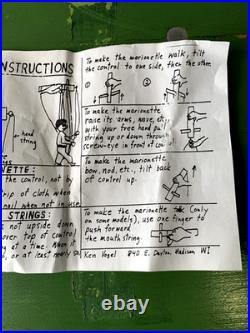 INSTRUCTIONS
hand
string
NETTE:
the control, not by
rip of cloth when
l when not in use.
STRINGS:
not upside down
over top of control
at a time. When
, or at least nearly so
To make the marionette walk, tilt
the control to one side, then the other.
①
②
To make the marionette
raise its arms, move, etc.
with your free hand pull
string up or down through
screw-eye in front of control
To make the marionette
bow, nod, etc., tilt back
of control up.
To make the marionette talk (only
on some models), use one finger to
push forward
the mouth string.
Ken Vogel 840 E. Dayton, Madison WI